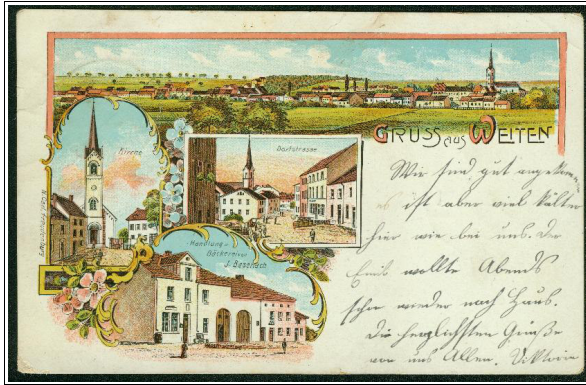 GRUSS aus WEITEN
Kirche
Dorfstrasse
Handlung u.
Bäckerei von
J.
Wir sind gut angekom-
ist aber viel kälter
hier wie bei uns. Der
Emil wollte Abends
schon wieder nach Haus.
Die herzlichsten Grüße
von uns Allen. Viktoria